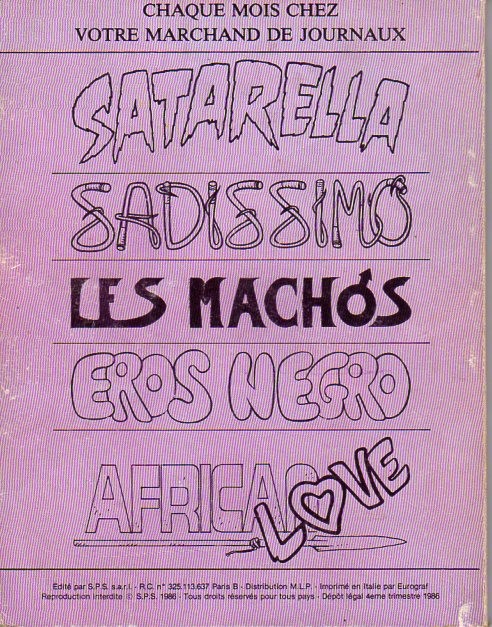 CHAQUE MOIS CHEZ
VOTRE MARCHAND DE JOURNAUX
SATARELLA
SADISSIMO
LES MACHOS
EROS NEGRO
AFRICAN LOVE
Édité par S.P.S. s.a.r.l. - R.C. n° 325.113.637 Paris B - Distribution M.L.P. - Imprimé en Italie par Eurograf
Reproduction interdite © S.P.S. 1986 - Tous droits réservés pour tous pays - Dépôt légal 4eme trimestre 1986